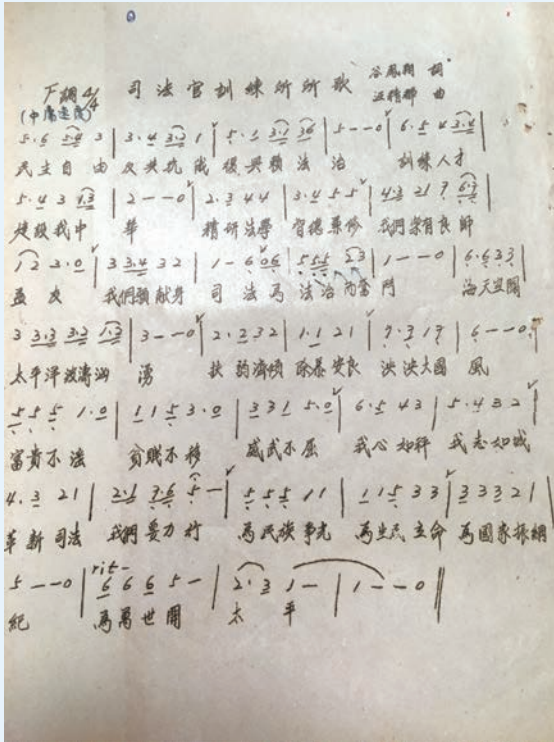 下調 4/4 司法官訓練所所歌 谷鳳翔 詞
汪精輝 曲
(中庸速度)
5·6 3·4 3 | 3·4 3·2 1 | 5·1 3·1 36 | 5--0 | 6·5 4 3·4 |
民主自由 及共抗俄 復興賴法治 訓練人才
5·4 3 1·3 | 2--0 | 2·3 4 4 | 3·4 5 5 | 4·3 21 7 6·7 |
建設我中華 精研法學 智德兼修 我們崇有良師
12 2·0 | 3 3·4 3 2 | 1-6 06 | 555 23 | 1--0 | 6·6 3 3 |
益友 我們願献身 司法為法治而奮鬥 海天空闊
3 3·3 3·2 1·3 | 3--0 | 2·2 3 2 | 1·1 2 1 | 7·3 1 7 | 6--0 |
太平洋波濤洶湧 扶弱濟傾 除暴安良 泱泱大國風
5 5 5 1·0 | 1 1 5 3·0 | 3 3 1 5·0 | 6·5 4 3 | 5·4 3 2 |
富貴不淫 貧賤不移 威武不屈 我心如秤 我志如城
4·3 2 1 | 2·1 7·6 5- | 5 5 5 1 1 | 1 1 5 3 3 | 3 3 3 2 1 |
革新司法 我們要力行 為民族爭光 為生民立命 為國家振綱
rit-
5--0 | 6 6 6 5- | 2·3 1- | 1--0 ||
紀 為萬世開太平